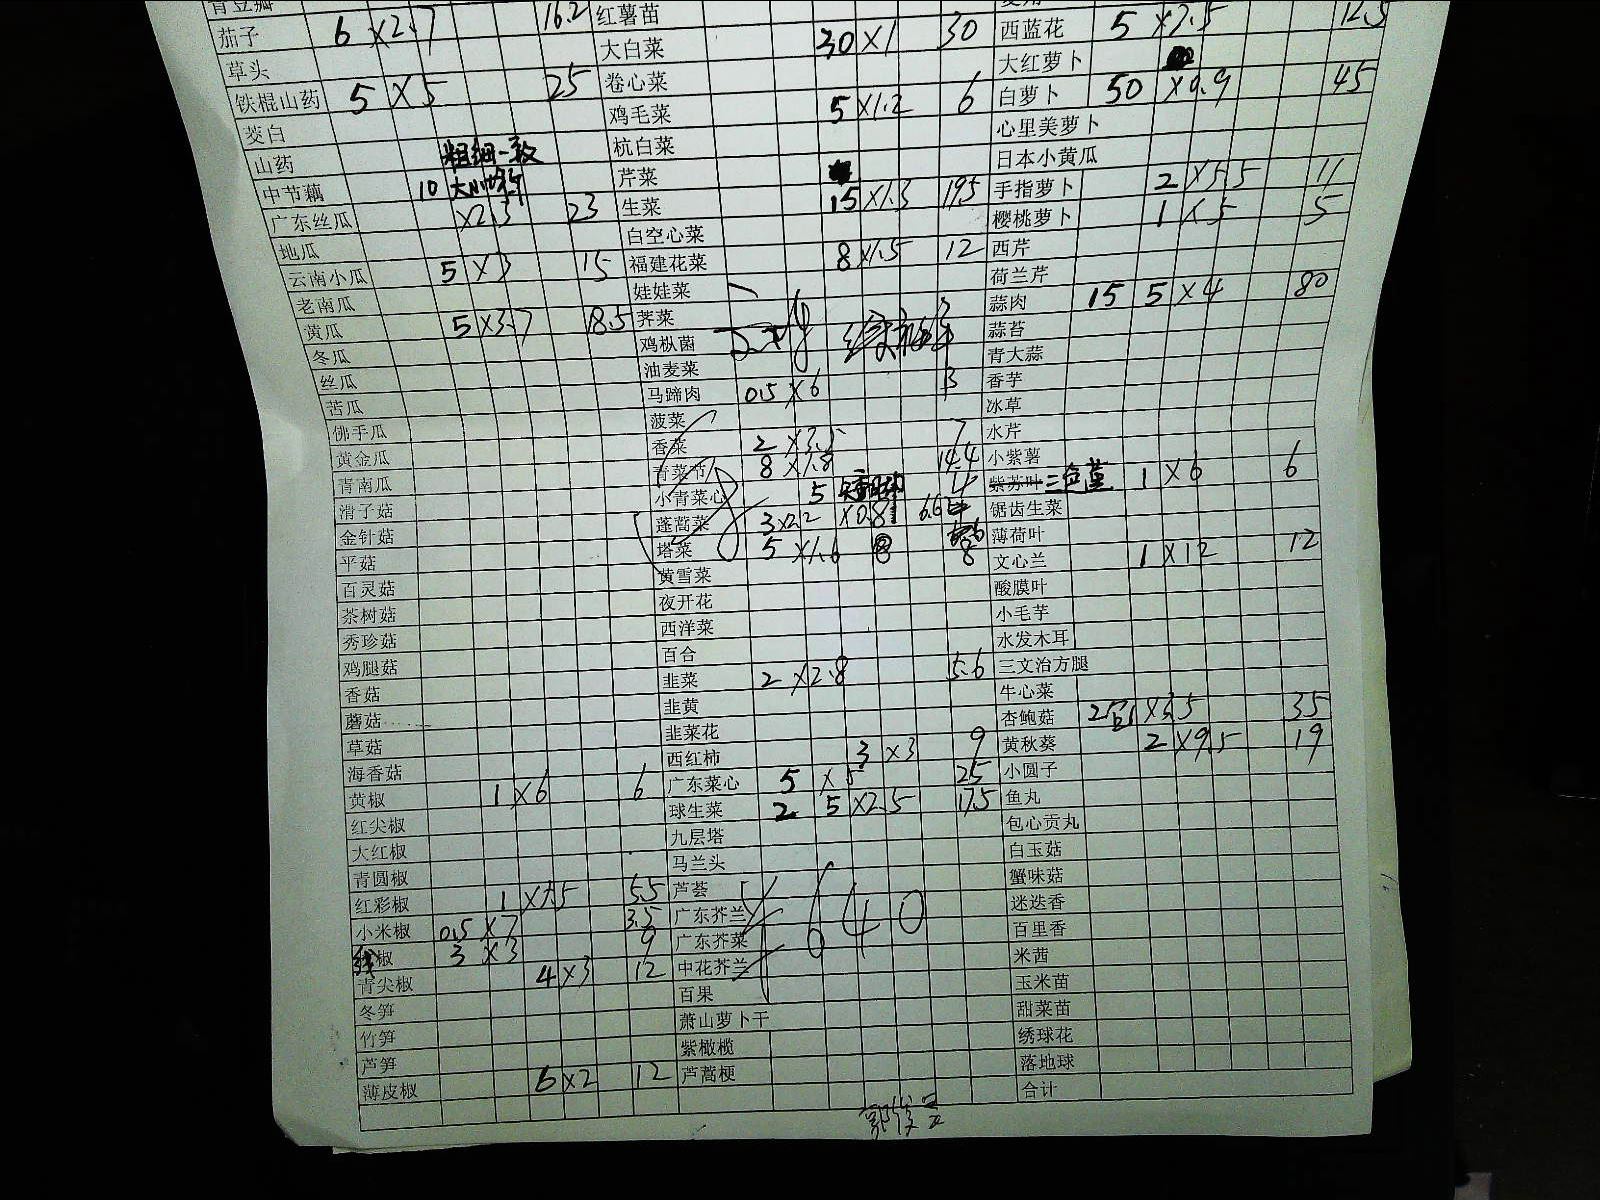 茄子 6 ×2.7 16.2
草头
铁棍山药 5 ×5 25
茭白
山药 粗细一致
中节藕 10
广东丝瓜 ×2.3 23
地瓜
云南小瓜 5 ×3 15
老南瓜
黄瓜 5 ×3.7 18.5
冬瓜
丝瓜
苦瓜
佛手瓜
黄金瓜
青南瓜
滑子菇
金针菇
平菇
百灵菇
茶树菇
秀珍菇
鸡腿菇
香菇
蘑菇
草菇
海香菇
黄椒 1 ×6 6
红尖椒
大红椒
青圆椒
红彩椒 1 ×5.5 5.5
小米椒 0.5 ×7 3.5
线椒 3 ×3 9
青尖椒 4 ×3 12
冬笋
竹笋
芦笋
薄皮椒 6 ×2 12
红薯苗
大白菜 30 ×1 30
卷心菜
鸡毛菜 5 ×1.2 6
杭白菜
芹菜
生菜 15 ×1.3 19.5
白空心菜
福建花菜 8 ×1.5 12
娃娃菜
荠菜
鸡枞菌
油麦菜
马蹄肉 0.5 ×6 3
菠菜
香菜 2 ×3.5 7
青菜节 8 ×1.8 14.4
小青菜心 5 ×0.8 4
蓬蒿菜 3×2.2 6.6
塔菜 5 ×1.6 8
黄雪菜
夜开花
西洋菜
百合
韭菜 2 ×2.8 5.6
韭黄
韭菜花
西红柿 3 ×3 9
广东菜心 5 ×5 25
球生菜 2. 5 ×2.5 17.5
九层塔
马兰头
芦荟
广东芥兰 640
广东芥菜
中花芥兰
百果
萧山萝卜干
紫橄榄
芦蒿梗
西蓝花 5 ×2.5 12.5
大红萝卜
白萝卜 50 ×0.9 45
心里美萝卜
日本小黄瓜
手指萝卜 2 ×5.5 11
樱桃萝卜 1 ×5 5
西芹
荷兰芹
蒜肉 15 5 ×4 80
蒜苔
青大蒜
香芋
冰草
水芹
小紫薯
紫苏叶 三色堇 1 ×6 6
锯齿生菜
薄荷叶
文心兰 1 ×12 12
酸膜叶
小毛芋
水发木耳
三文治方腿
牛心菜
杏鲍菇 ×3.5 35
黄秋葵 2 ×9.5 19
小圆子
鱼丸
包心贡丸
白玉菇
蟹味菇
迷迭香
百里香
米茜
玉米苗
甜菜苗
绣球花
落地球
合计